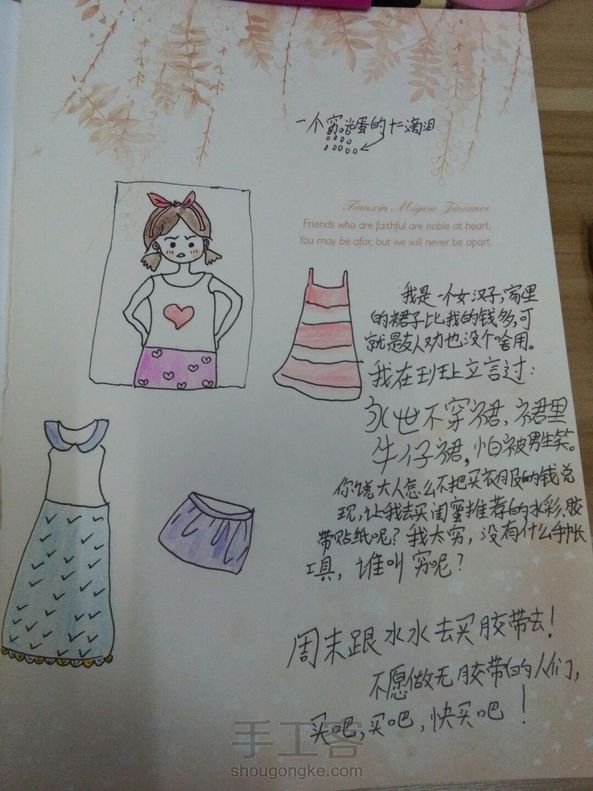 一个穷光蛋的十二滴泪
Tianxin Miyou Jiniance
Friends who are faithful are noble at heart.
You may be afar, but we will never be apart.
我是一个女汉子,家里
的裙子比我的钱多,可
就是友人劝也没个啥用。
我在班上立言过:
永世不穿裙,裙里
牛仔裙,怕被男生笑。
你说大人怎么不把买衣服的钱兑
现,让我去买闺蜜推荐的水彩、胶
带贴纸呢?我太穷,没有什么手帐
工具,谁叫穷呢?
周末跟水水去买胶带去!
不愿做无胶带的人们,
买吧,买吧,快买吧!
手工客
shougongke.com